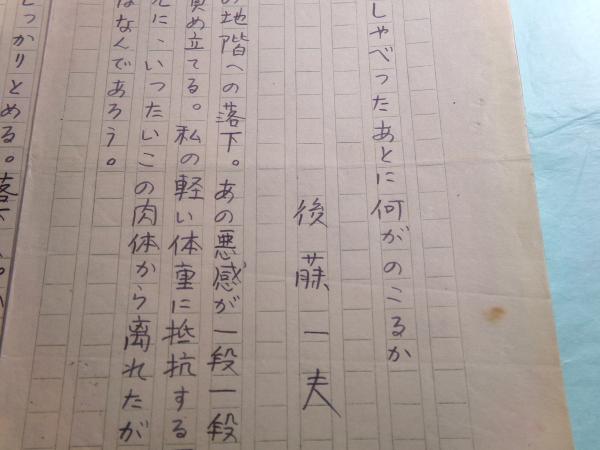 しゃべったあとに何がのこるか
後藤一夫
の地階への落下。あの悪感が一段一段
責め立てる。私の軽い体重に抵抗する
に、いったいこの肉体から離れたが
はなんであろう。
しっかりとめる。落下